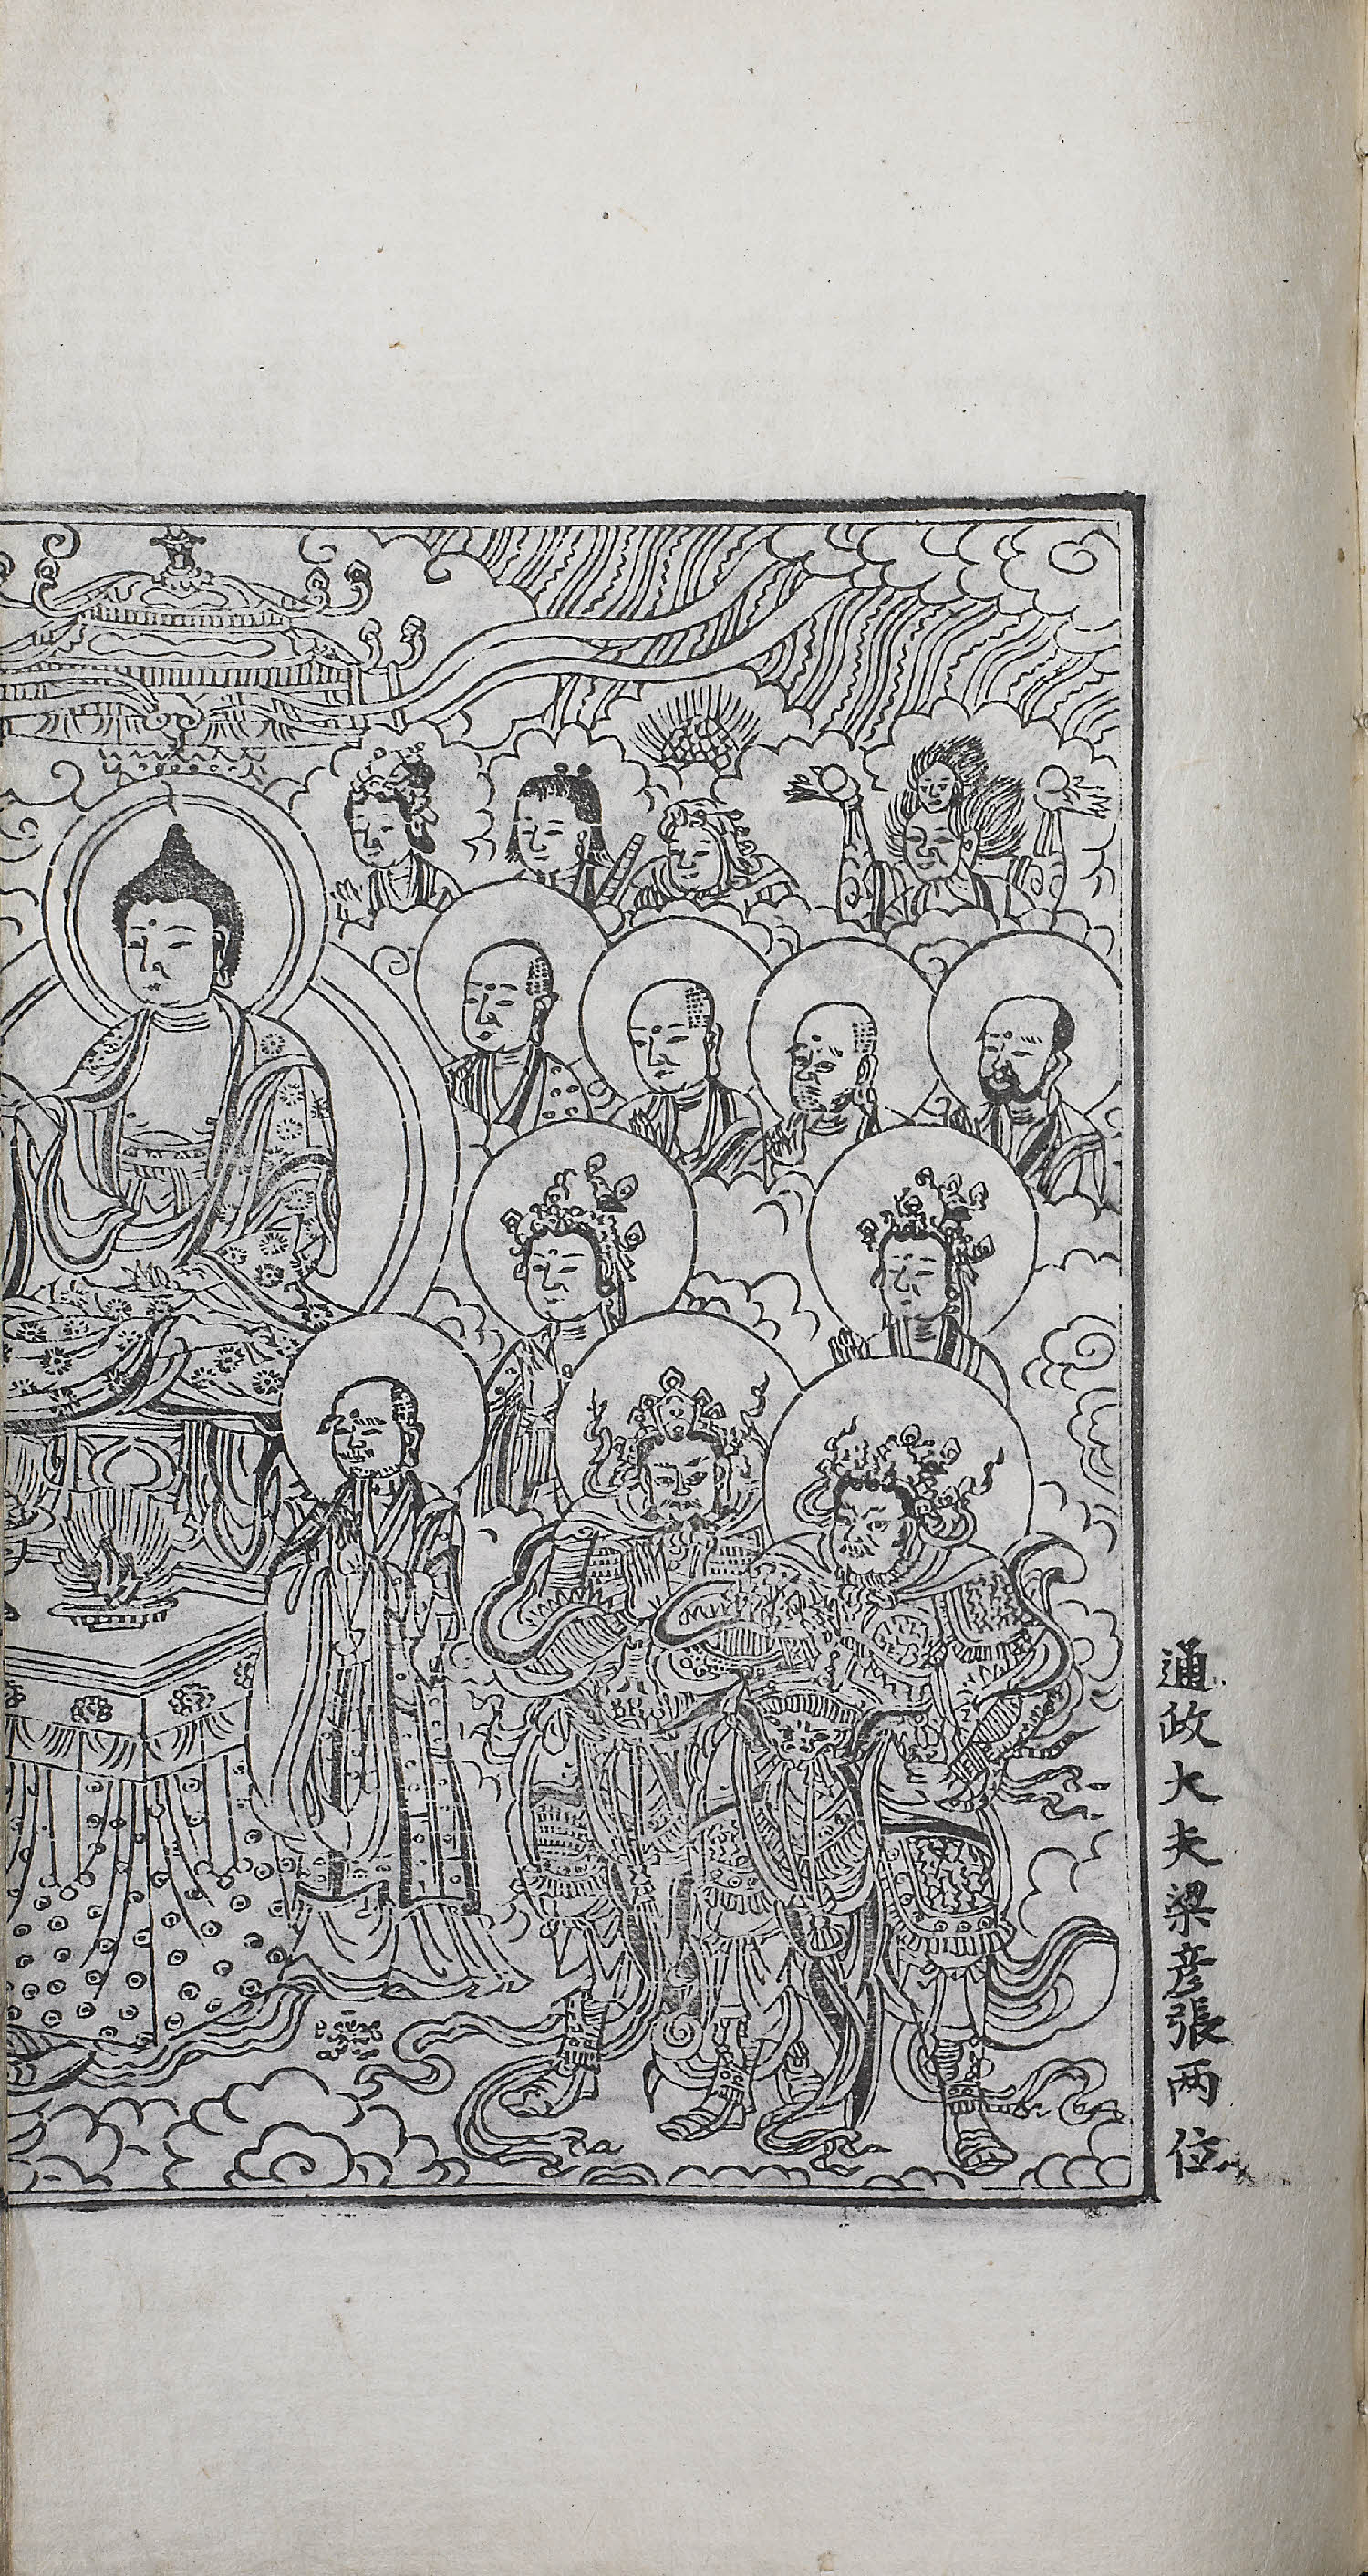 通政大夫梁彦張兩位